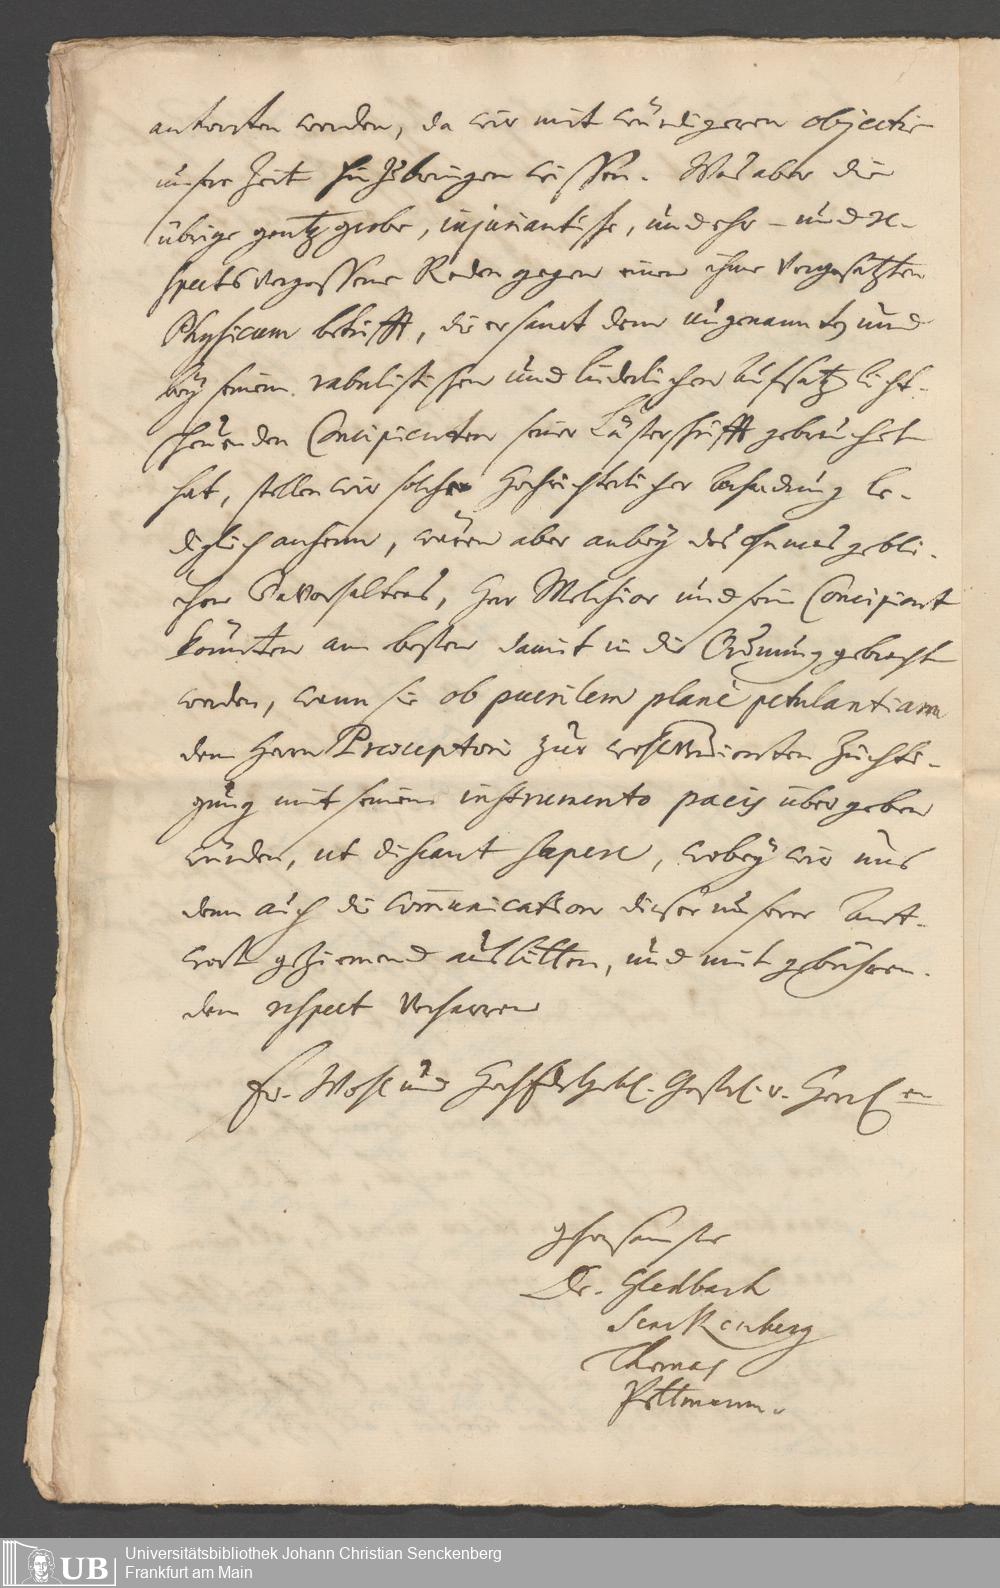 antworten werden, da wir mit würdigeren objectis
unsre Zeit hinzubringen wissen. Was aber die
übrige gantz grobe, injuriantische, und ehr- und re-
spects vergessene Reden gegen einen ihme Vorgesetzten
Physicum betrifft, die er samt dem ungenannten und
bey seinem rabulistischen und liederlichen Aufsatz licht-
scheuenden Concipienten seiner Lästerschrifft gebrauchet
hat, stellen wir solche Hochrichterlicher Ahndung le-
diglich anheim, wären aber anbey des
Davorhaltens, Herr Melchior und sein Concipient
könnten am besten damit in die Ordnung gebracht
werden, wenn sie ob puerilem plane petulantiam
dem Herrn Praeceptori zur wohlverdienten Züchti-
gung mit seinem instrumento pacis übergeben
würden, ut discant sapere, wobey wir uns
denn auch die communication dieser unserer Ant-
wort geziemend ausbitten, und mit gebühren-
dem respect verharren
Ew. Wohl und Hochfürsichtl. Gestr. u. Herrl.en
gehorsamste
Dr. Gladbach
Senckenberg
Thomas
Pettmann.
Universitätsbibliothek Johann Christian Senckenberg
Frankfurt am Main
UB